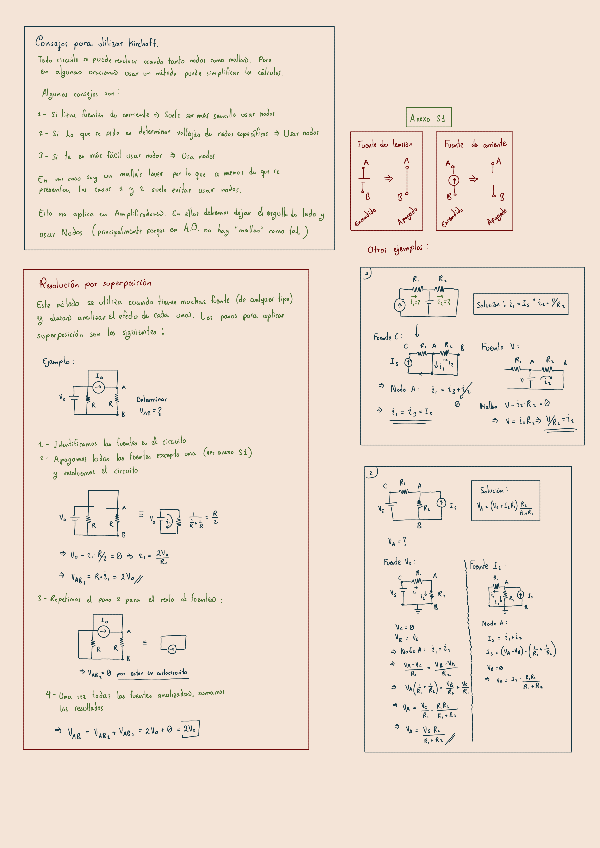 Consejos para utilizar Kirchoff.
Todo circuito se puede resolver usando tanto nodos como mallas. Pero
en algunas ocasiones usar un método puede simplificar los cálculos
Algunos consejos son:
1- Si tiene fuentes de corriente ⇒ Suele ser más sencillo usar nodos
2- Si lo que se pide es determinar voltajes de nodos específicos ⇒ Usar nodos
3- Si te es más fácil usar nodos ⇒ Usa nodos
En mi caso soy un mallas lover por lo que a menos de que se
presenten los casos 1 y 2 suelo evitar usar nodos.
Esto no aplica en Amplificadores. En ellos debemos dejar el orgullo de lado y
usar Nodos (principalmente porque en A.O. no hay "mallas" como tal.)
Anexo S1
Fuente de tensión
A
A
⇒
B
B
Encendido
Apagado
Fuente de corriente
A
A
⇒
B
B
Encendido
Apagado
Otros ejemplos:
Resolución por superposición
Este método se utiliza cuando tienes muchas fuente (de cualquier tipo)
y deseas analizar el efecto de cada una. Los pasos para aplicar
superposición son los siguientes:
Ejemplo:
I0
A
V0
R
R
B
Determinar
VAB = ?
1- Identificamos las fuentes en el circuito
2- Apagamos todas las fuentes excepto una (ver anexo S1)
y resolvemos el circuito
V0
R
R
A
B
=
V0
⇒ V0 - i1 R/2 = 0 ⇒ i1 = 2V0/R
3- Repetimos el paso 2 para el resto de fuentes:
I0
A
R
R
B
=
⇒ VAB2 = 0 por estar en cortocircuito
4- Una vez todas las fuentes analizadas, sumamos
los resultados
⇒ VAB = VAB1 + VAB2 = 2V0 + 0 = 2V0
1)
R1
R2
Fuente C:
C R1 A R2 B
Is
⇒ Nodo A: i1 = i3 + i2
0
⇒ i1 = i3 = Is
Fuente V:
R1 A R2 B
V
i2
Malla: V - i2 R2 = 0
⇒ V = i2 R2 ⇒ V/R2 = i2
2)
C R1 A
Vs
R2
Is
B
VA = ?
Solución:
Fuente Vs:
C R1 A
Vs
R2
B
⇒ Nodo A: i1 = i2
⇒ VA = Vs R2/(R1+R2)
Fuente Is:
R1 A
R2
Is
B
Nodo A:
Is = i1 + i2
VB = 0
⇒ VA = Is · R1R2/(R1+R2)